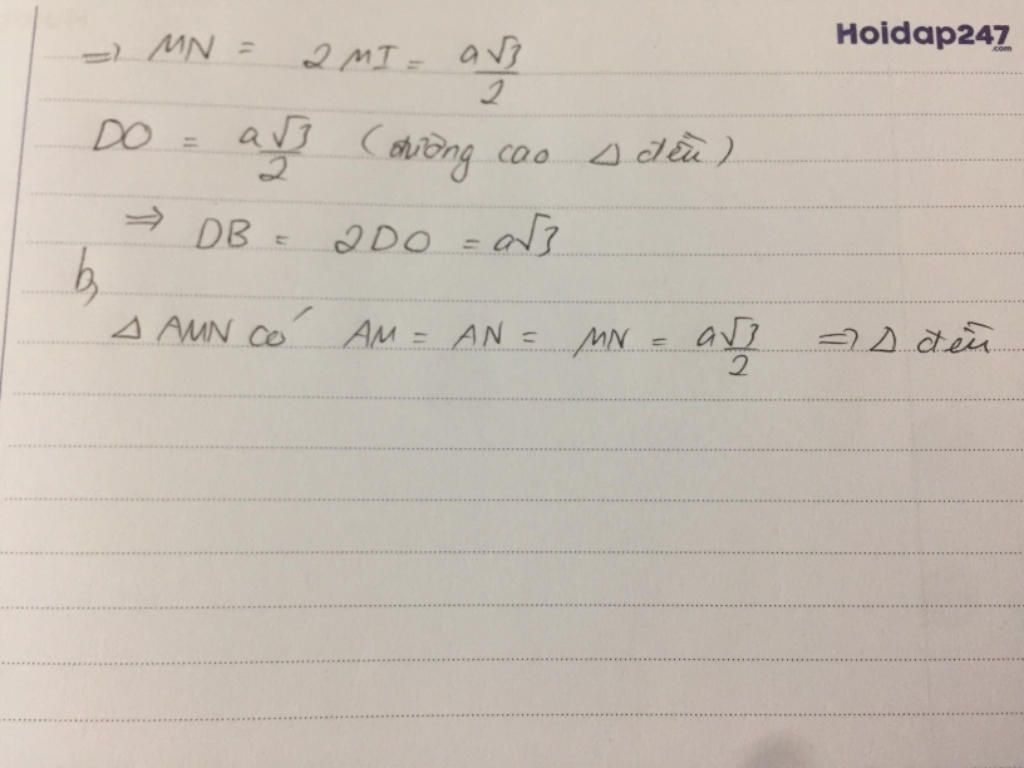 Hoidap247
.com
⇒ MN = 2MI = a√3/2
DO = a√3/2 (đường cao Δ đều)
⇒ DB = 2DO = a√3
b,
Δ AMN có AM = AN = MN = a√3/2 ⇒ Δ đều